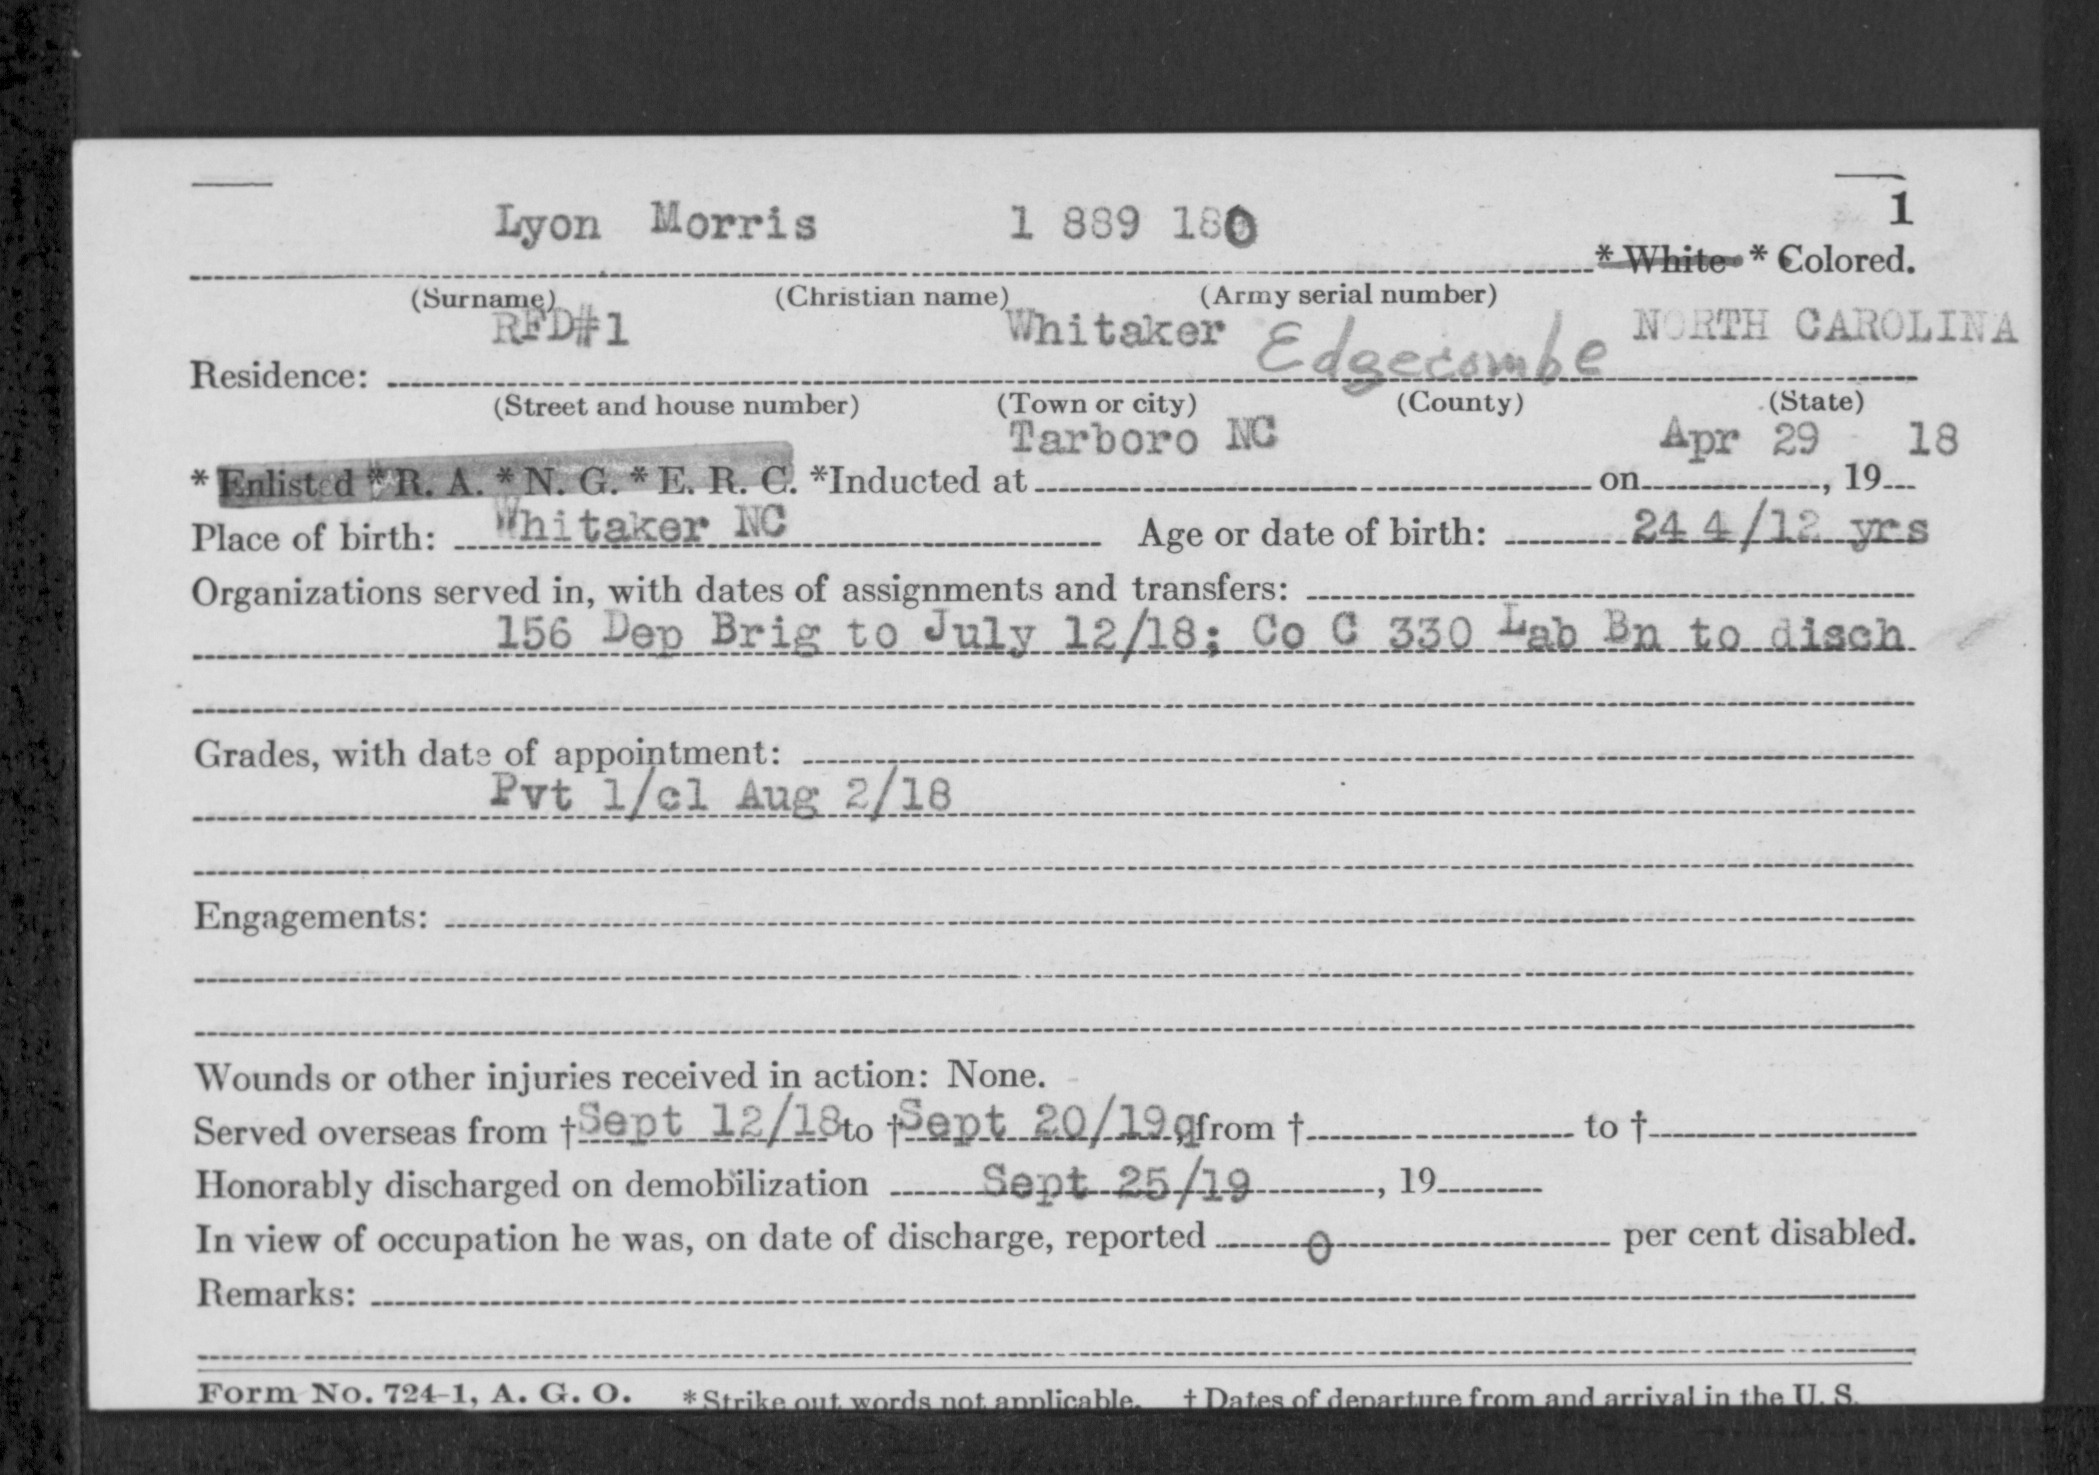 1
Lyon Morris 1 889 180
* White * Colored.
(Surname) (Christian name) (Army serial number)
RFD#1 Whitaker Edgecombe NORTH CAROLINA
Residence:
(Street and house number) (Town or city) (County) (State)
Tarboro NC Apr 29 18
* Enlisted * R. A. * N. G. * E. R. C. *Inducted at on , 19
Place of birth: Whitaker NC Age or date of birth: 24 4/12 yrs
Organizations served in, with dates of assignments and transfers:
156 Dep Brig to July 12/18; Co C 330 Lab Bn to disch
Grades, with date of appointment:
Pvt 1/cl Aug 2/18
Engagements:
Wounds or other injuries received in action: None.
Served overseas from † Sept 12/18 to † Sept 20/19 from † to †
Honorably discharged on demobilization Sept 25/19 , 19
In view of occupation he was, on date of discharge, reported 0 per cent disabled.
Remarks:
Form No. 724-1, A. G. O. * Strike out words not applicable. † Dates of departure from and arrival in the U. S.